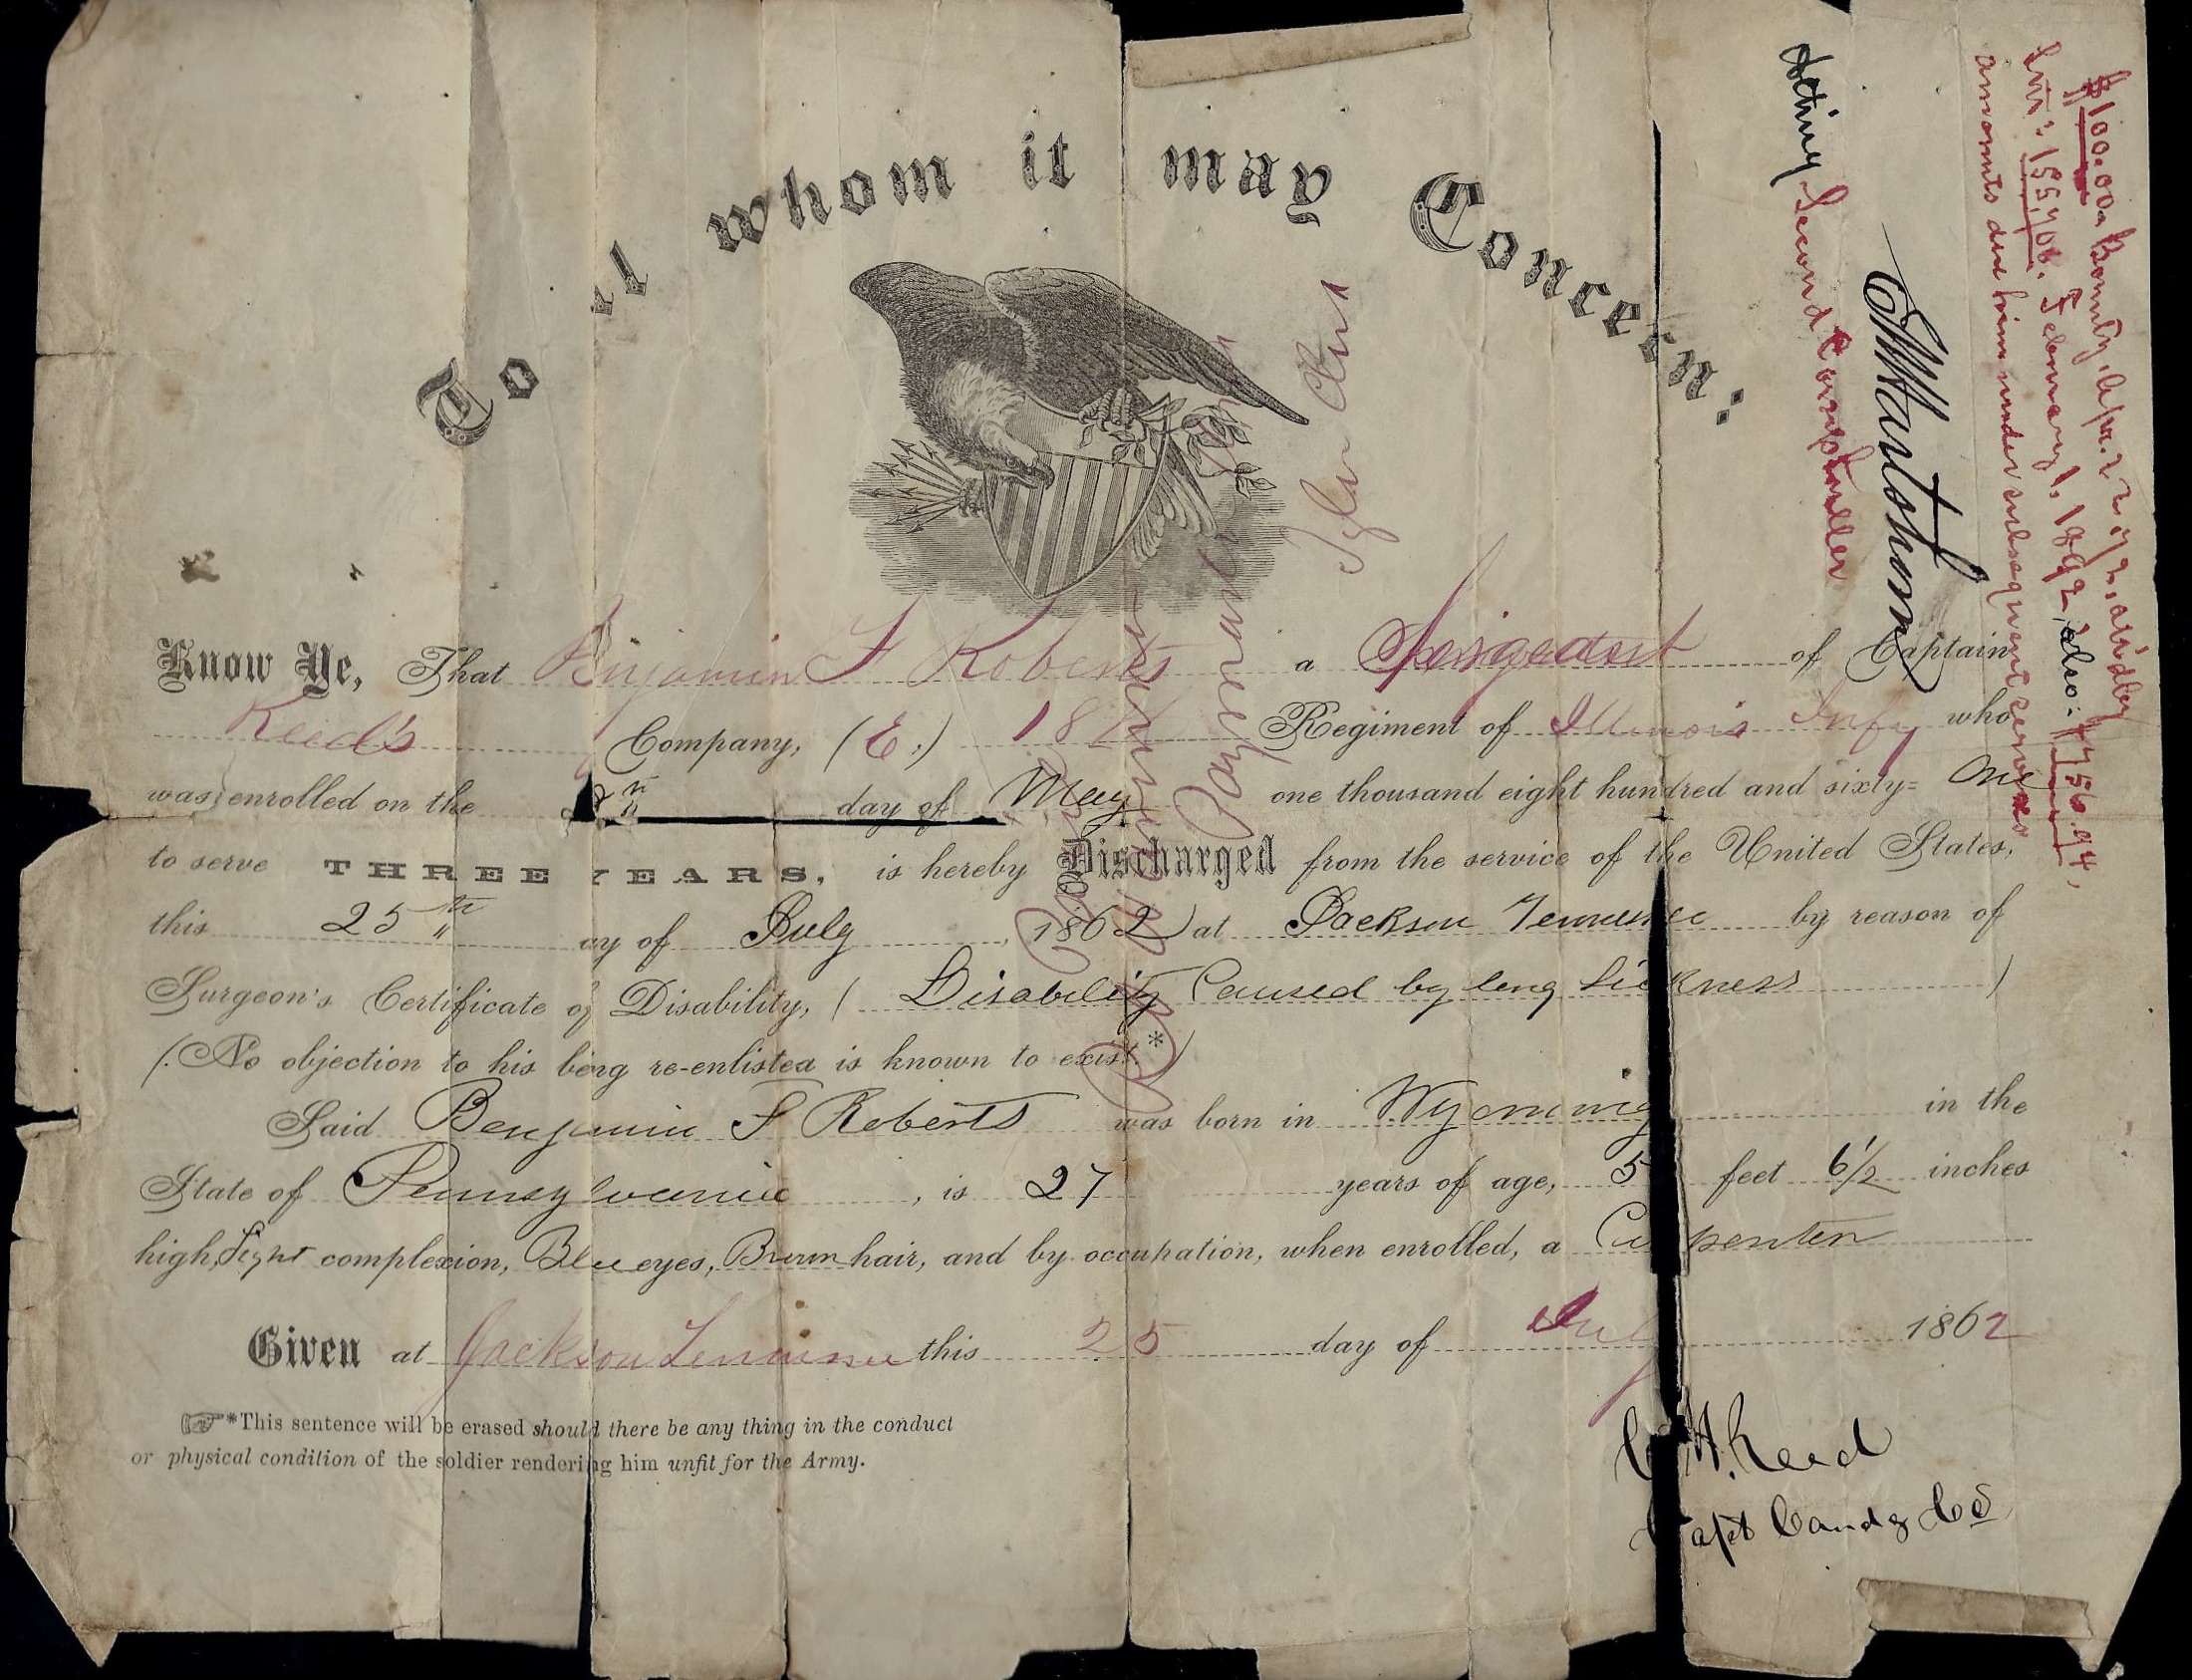 To all whom it may Concern:
Know Ye, That Benjamin F Roberts a Sergeant of Captain
Reed's Company, (E,) 18 Regiment of Illinois Infy who
was enrolled on the day of May one thousand eight hundred and sixty= One
to serve THREE YEARS, is hereby Discharged from the service of the United States,
this 25th day of July, 1862 at Jackson Tennessee by reason of
Surgeon's Certificate of Disability, (Disability Caused by long Sickness)
(No objection to his being re-enlisted is known to exist.*)
Said Benjamin F Roberts was born in Wyoming in the
State of Pennsylvania, is 27 years of age, 5 feet 6 1/2 inches
high, Light complexion, Blue eyes, Brown hair, and by occupation, when enrolled, a Carpenter
Given at Jackson Tennessee this 25 day of July 1862
*This sentence will be erased should there be any thing in the conduct
or physical condition of the soldier rendering him unfit for the Army.
C. H. Reed
Capt Comdg Co
$100.00 Bounty, Apr. 22
February 1, 1892, also: $756.94,
amounts due him under subsequent services
Acting Second Comptroller